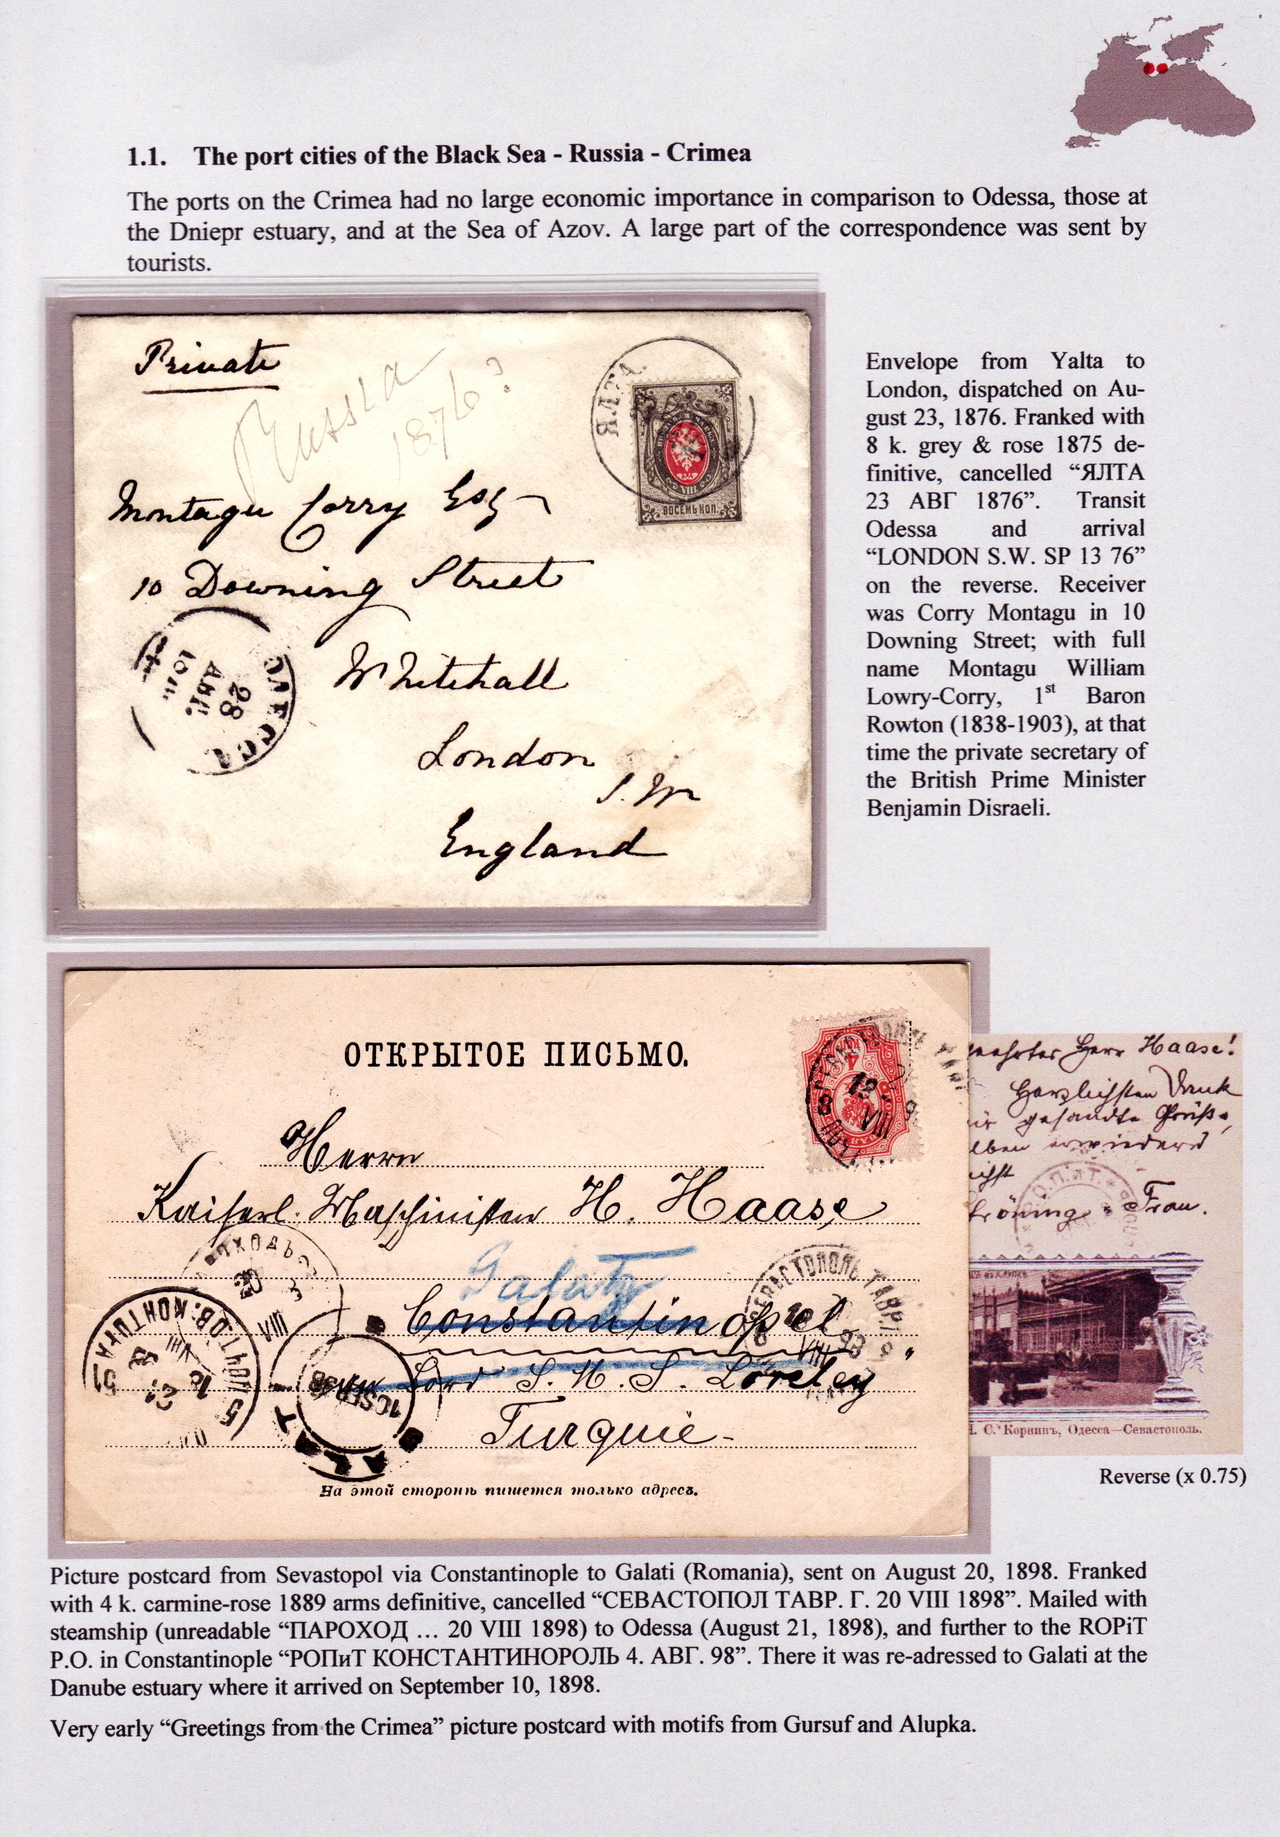 1.1. The port cities of the Black Sea - Russia - Crimea
The ports on the Crimea had no large economic importance in comparison to Odessa, those at
the Dniepr estuary, and at the Sea of Azov. A large part of the correspondence was sent by
tourists.
Private
Russia
1876?
ЯЛТА
ВОСЕМЬ КОП.
Montagu Corry Esq
10 Downing Street
Whitehall
London
S.W
England
ОДЕССА
28
АВГ.
Envelope from Yalta to
London, dispatched on Au-
gust 23, 1876. Franked with
8 k. grey & rose 1875 de-
finitive, cancelled “ЯЛТА
23 АВГ 1876”. Transit
Odessa and arrival
“LONDON S.W. SP 13 76”
on the reverse. Receiver
was Corry Montagu in 10
Downing Street; with full
name Montagu William
Lowry-Corry, 1st Baron
Rowton (1838-1903), at that
time the private secretary of
the British Prime Minister
Benjamin Disraeli.
ОТКРЫТОЕ ПИСЬМО.
Herrn
Kaiserl. Maschinisten H. Haase
Galatz
Constantinopel
Bord S. M. S. Loreley"
Turquie-
На этой сторонѣ пишется только адресъ.
СЕВАСТОПОЛЬ ТАВР.
VIII
ПОЧТОВ. КОНТОРА
51
21
GALATI
10 SEP 98
geehrter Herr Haase!
Herzlichsten Dank
gesandte Grüße,
erwiedernd
Frau.
Р.О.П.иТ.
С. Корнинъ, Одесса—Севастополь.
Reverse (x 0.75)
Picture postcard from Sevastopol via Constantinople to Galati (Romania), sent on August 20, 1898. Franked
with 4 k. carmine-rose 1889 arms definitive, cancelled “СЕВАСТОПОЛ ТАВР. Г. 20 VIII 1898”. Mailed with
steamship (unreadable “ПАРОХОД ... 20 VIII 1898) to Odessa (August 21, 1898), and further to the ROPiT
P.O. in Constantinople “РОПиТ КОНСТАНТИНОРОЛЬ 4. АВГ. 98”. There it was re-adressed to Galati at the
Danube estuary where it arrived on September 10, 1898.
Very early “Greetings from the Crimea” picture postcard with motifs from Gursuf and Alupka.